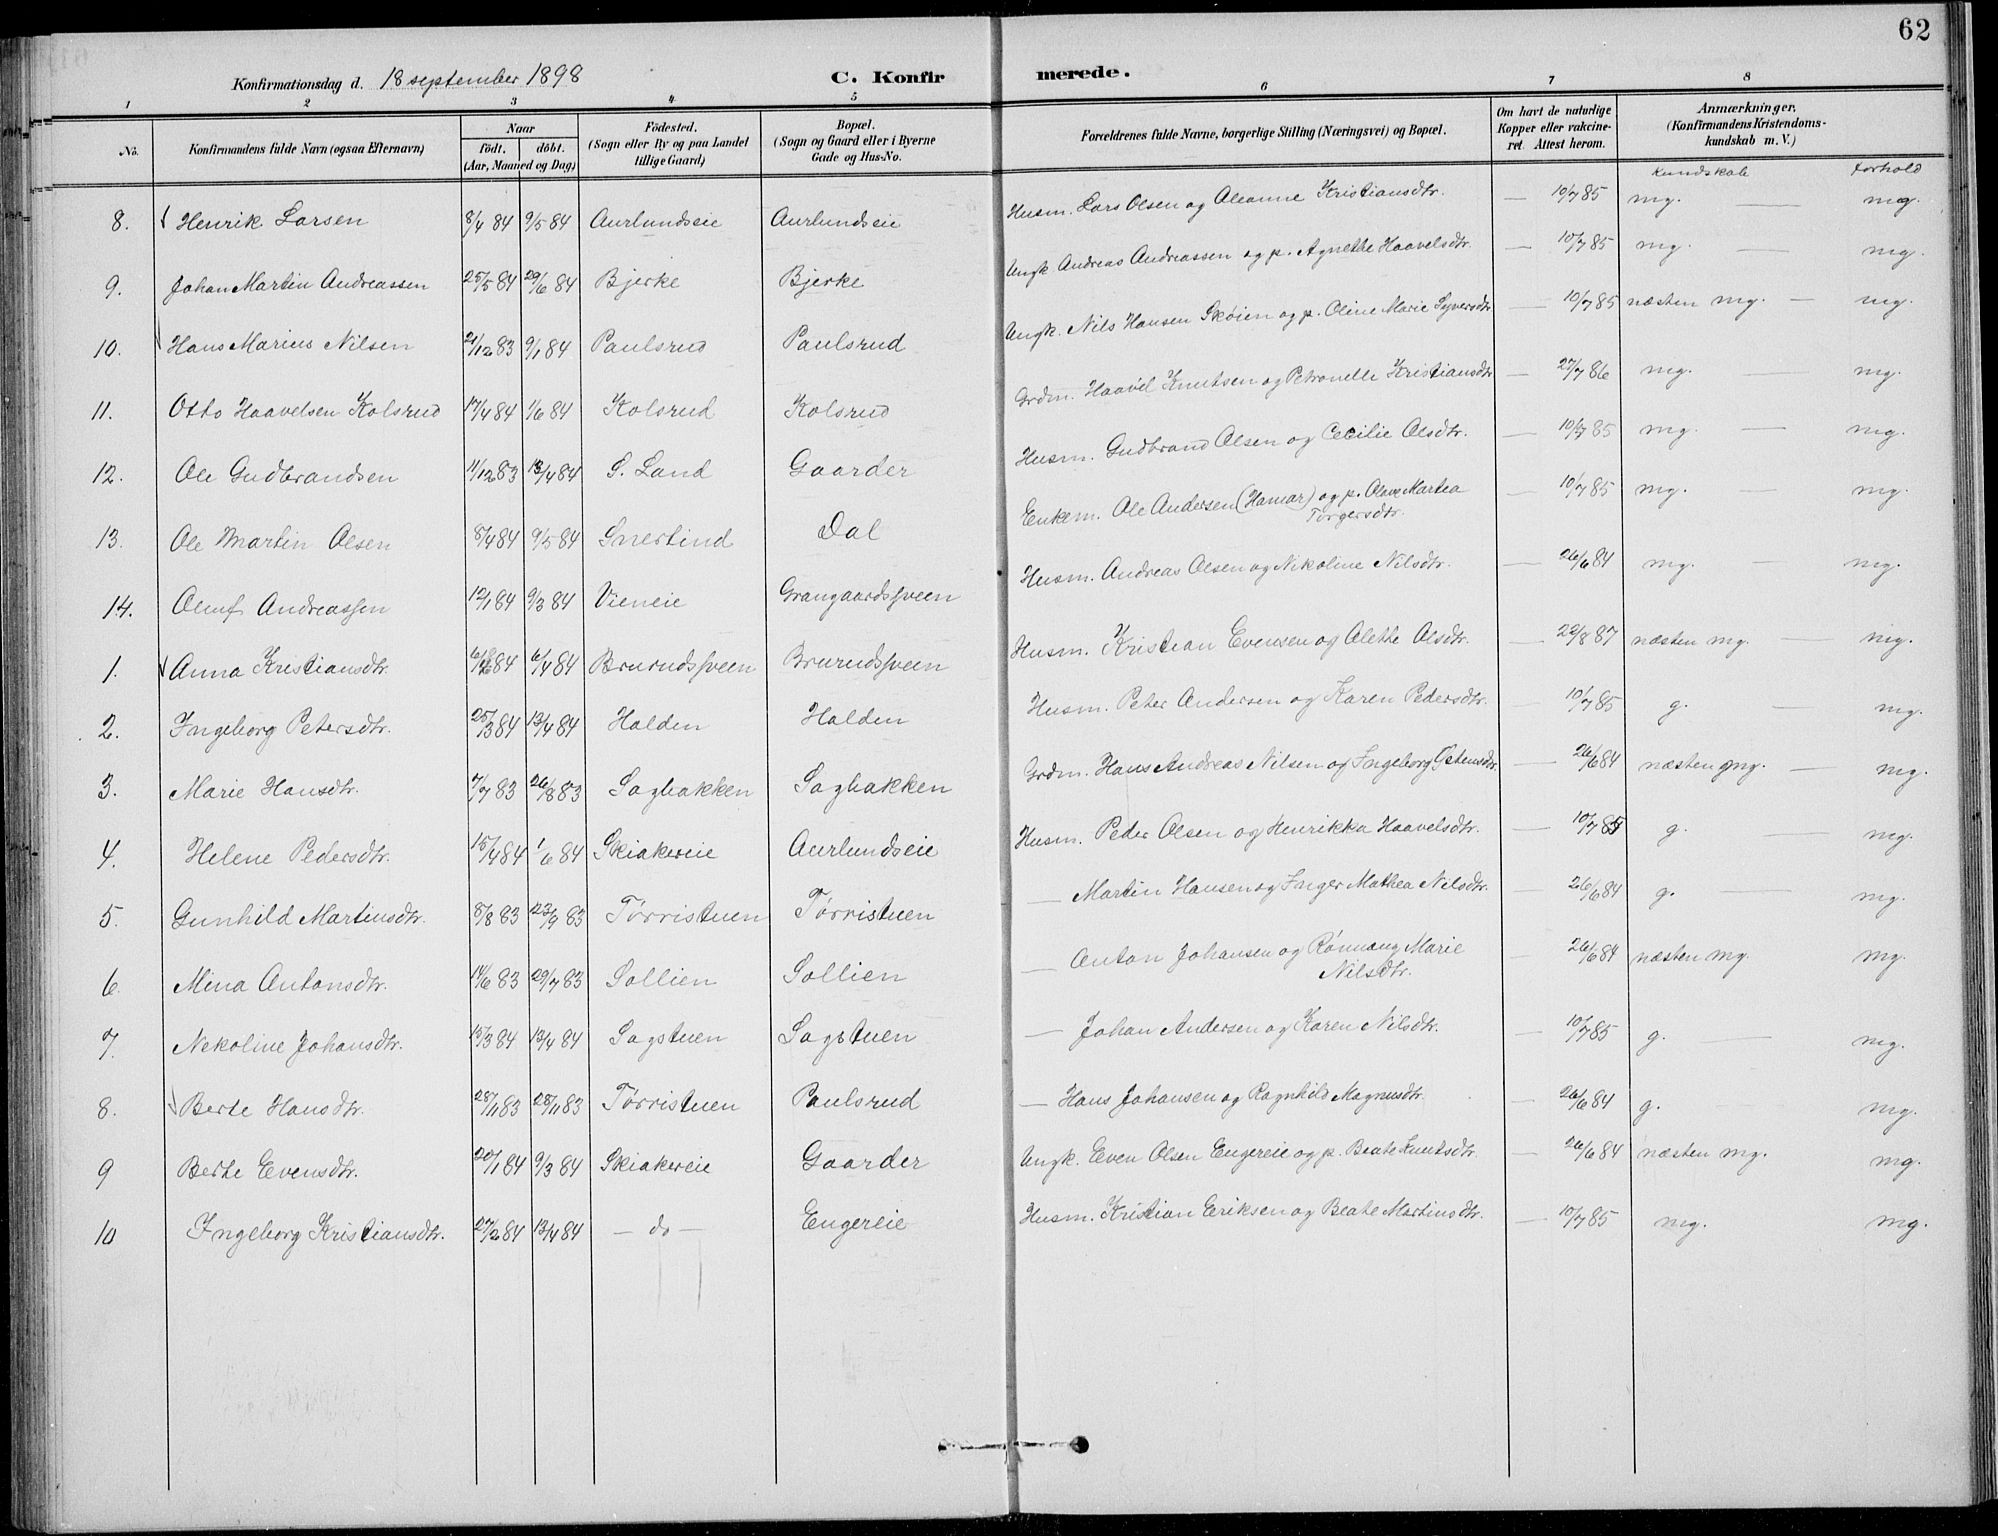 62
Konfirmationsdag d. 18 september 1898 C. Konfirmerede.
1 2 3 4 5 6 7 8
No. Konfirmandens fulde Navn (ogsaa Efternavn) Naar født. døbt. (Aar, Maaned og Dag) Fødested. (Sogn eller By og paa Landet tillige Gaard) Bopæl. (Sogn og Gaard eller i Byerne Gade og Hus-No. Forældrenes fulde Navne, borgerlige Stilling (Næringsvei) og Bopæl. Om havt de naturlige Kopper eller vakcineret. Attest herom. Anmærkninger. (Konfirmandens Kristendomskundskab m. V.)
Kundskab forhold
8. Henrik Larsen 8/4 84 9/5 84 Aurlundseie Aurlundseie Husm. Lars Olsen og Oleanne Kristiansdtr. — 10/7 85 mg. — mg.
9. Johan Martin Andreassen 25/5 84 29/6 84 Bjerke Bjerke Ungk. Andreas Andreassen og p. Agnethe Haavelsdtr. — 10/7 85 mg. — mg.
10. Hans Marius Nilsen 21/12 83 9/1 84 Paulsrud Paulsrud Ungk. Nils Hansen Skøien og p. Oline Marie Syversdtr — 10/7 85 næsten mg. — mg.
11. Otto Haavelsen Kolsrud 17/4 84 1/6 84 Kolsrud Kolsrud Grdm. Haavel Knutsen og Petronelle Kristiansdtr — 27/7 86 mg. — mg.
12. Ole Gudbrandsen 11/12 83 13/4 84 S. Land Gaarder Husm. Gudbrand Olsen og Cecilie Olsdtr. — 10/7 85 mg. — mg.
13. Ole Martin Olsen 8/4 84 9/5 84 Snertind Dal Enkem. Ole Andersen (Hamar) og p. Olave Martea Torgersdtr. — 10/7 85 mg. — mg.
14. Oluf Andreassen 12/1 84 9/3 84 Vieneie Grangaardssveen Husm. Andreas Olsen og Nikoline Nilsdtr. — 26/6 84 mg. — mg.
1. Anna Kristiansdtr. 84 6/4 84 Brurudssveen Brurudssveen Husm. Kristian Evensen og Alethe Olsdtr. — 22/8 87 næsten mg. — mg.
2. Ingeborg Petersdtr. 25/3 84 13/4 84 Halden Halden Husm. Peter Andersen og Karen Pedersdtr. — 10/7 85 g. — mg.
3. Marie Hansdtr. 7/7 83 26/8 83 Sagbakken Sagbakken Grdm. Hans Andreas Nilsen og Ingeborg Ostensdtr. — 26/6 84 næsten mg. — mg.
4. Helene Pedersdtr. 15/4 84 1/6 84 Skiakereie Aurlundseie Husm. Peder Olsen og Henrikka Haavelsdtr. — 10/7 85 g. — mg.
5. Gunhild Martinsdtr. 8/8 83 23/9 83 Tørristuen Tørristuen — Martin Hansen og Inger Mathea Nilsdtr. — 26/6 84 g. — mg.
6. Mina Antonsdtr. 14/6 83 29/7 83 Sollien Sollien — Anton Johansen og Rønnaug Marie Nilsdtr. — 26/6 84 næsten mg. mg.
7. Nekoline Johansdtr. 15/3 84 13/4 84 Sagstuen Sagstuen — Johan Andersen og Karen Nilsdtr. — 10/7 85 g. — mg.
8. Berte Hansdtr. 28/11 83 28/11 83 Tørristuen Paulsrud — Hans Johansen og Ragnhild Magnusdtr. — 26/6 84 g. mg.
9 Berte Evensdtr. 20/1 84 9/3 84 Skiakereie Gaarder Ungk. Even Olsen Engereie og p. Beate Knutsdtr. — 26/6 84 næsten mg. mg.
10 Ingeborg Kristiansdtr. 27/2 84 13/4 84 — do — Engereie Husm. Kristian Eriksen og Beate Martinsdtr. — 10/7 85 mg. mg.